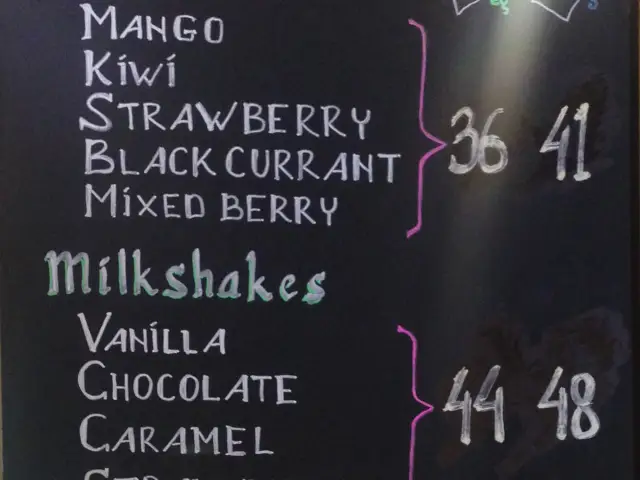 Mango
Kiwi
Strawberry
Black Currant
Mixed Berry
36 41
Milkshakes
Vanilla
Chocolate
Caramel
44 48